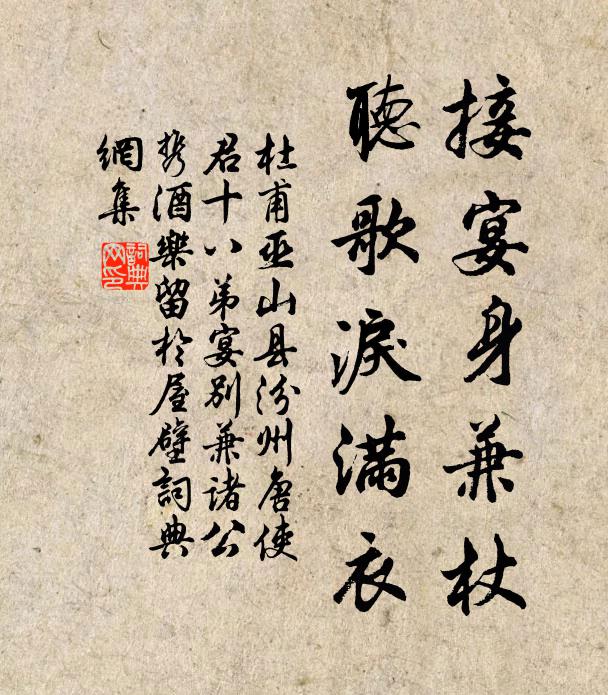 接宴身兼杖
聽歌淚滿衣
杜甫巫山县汾州唐使
君十八弟宴別兼诸公
携酒樂留於屋壁詞典
網集
詞典
网印